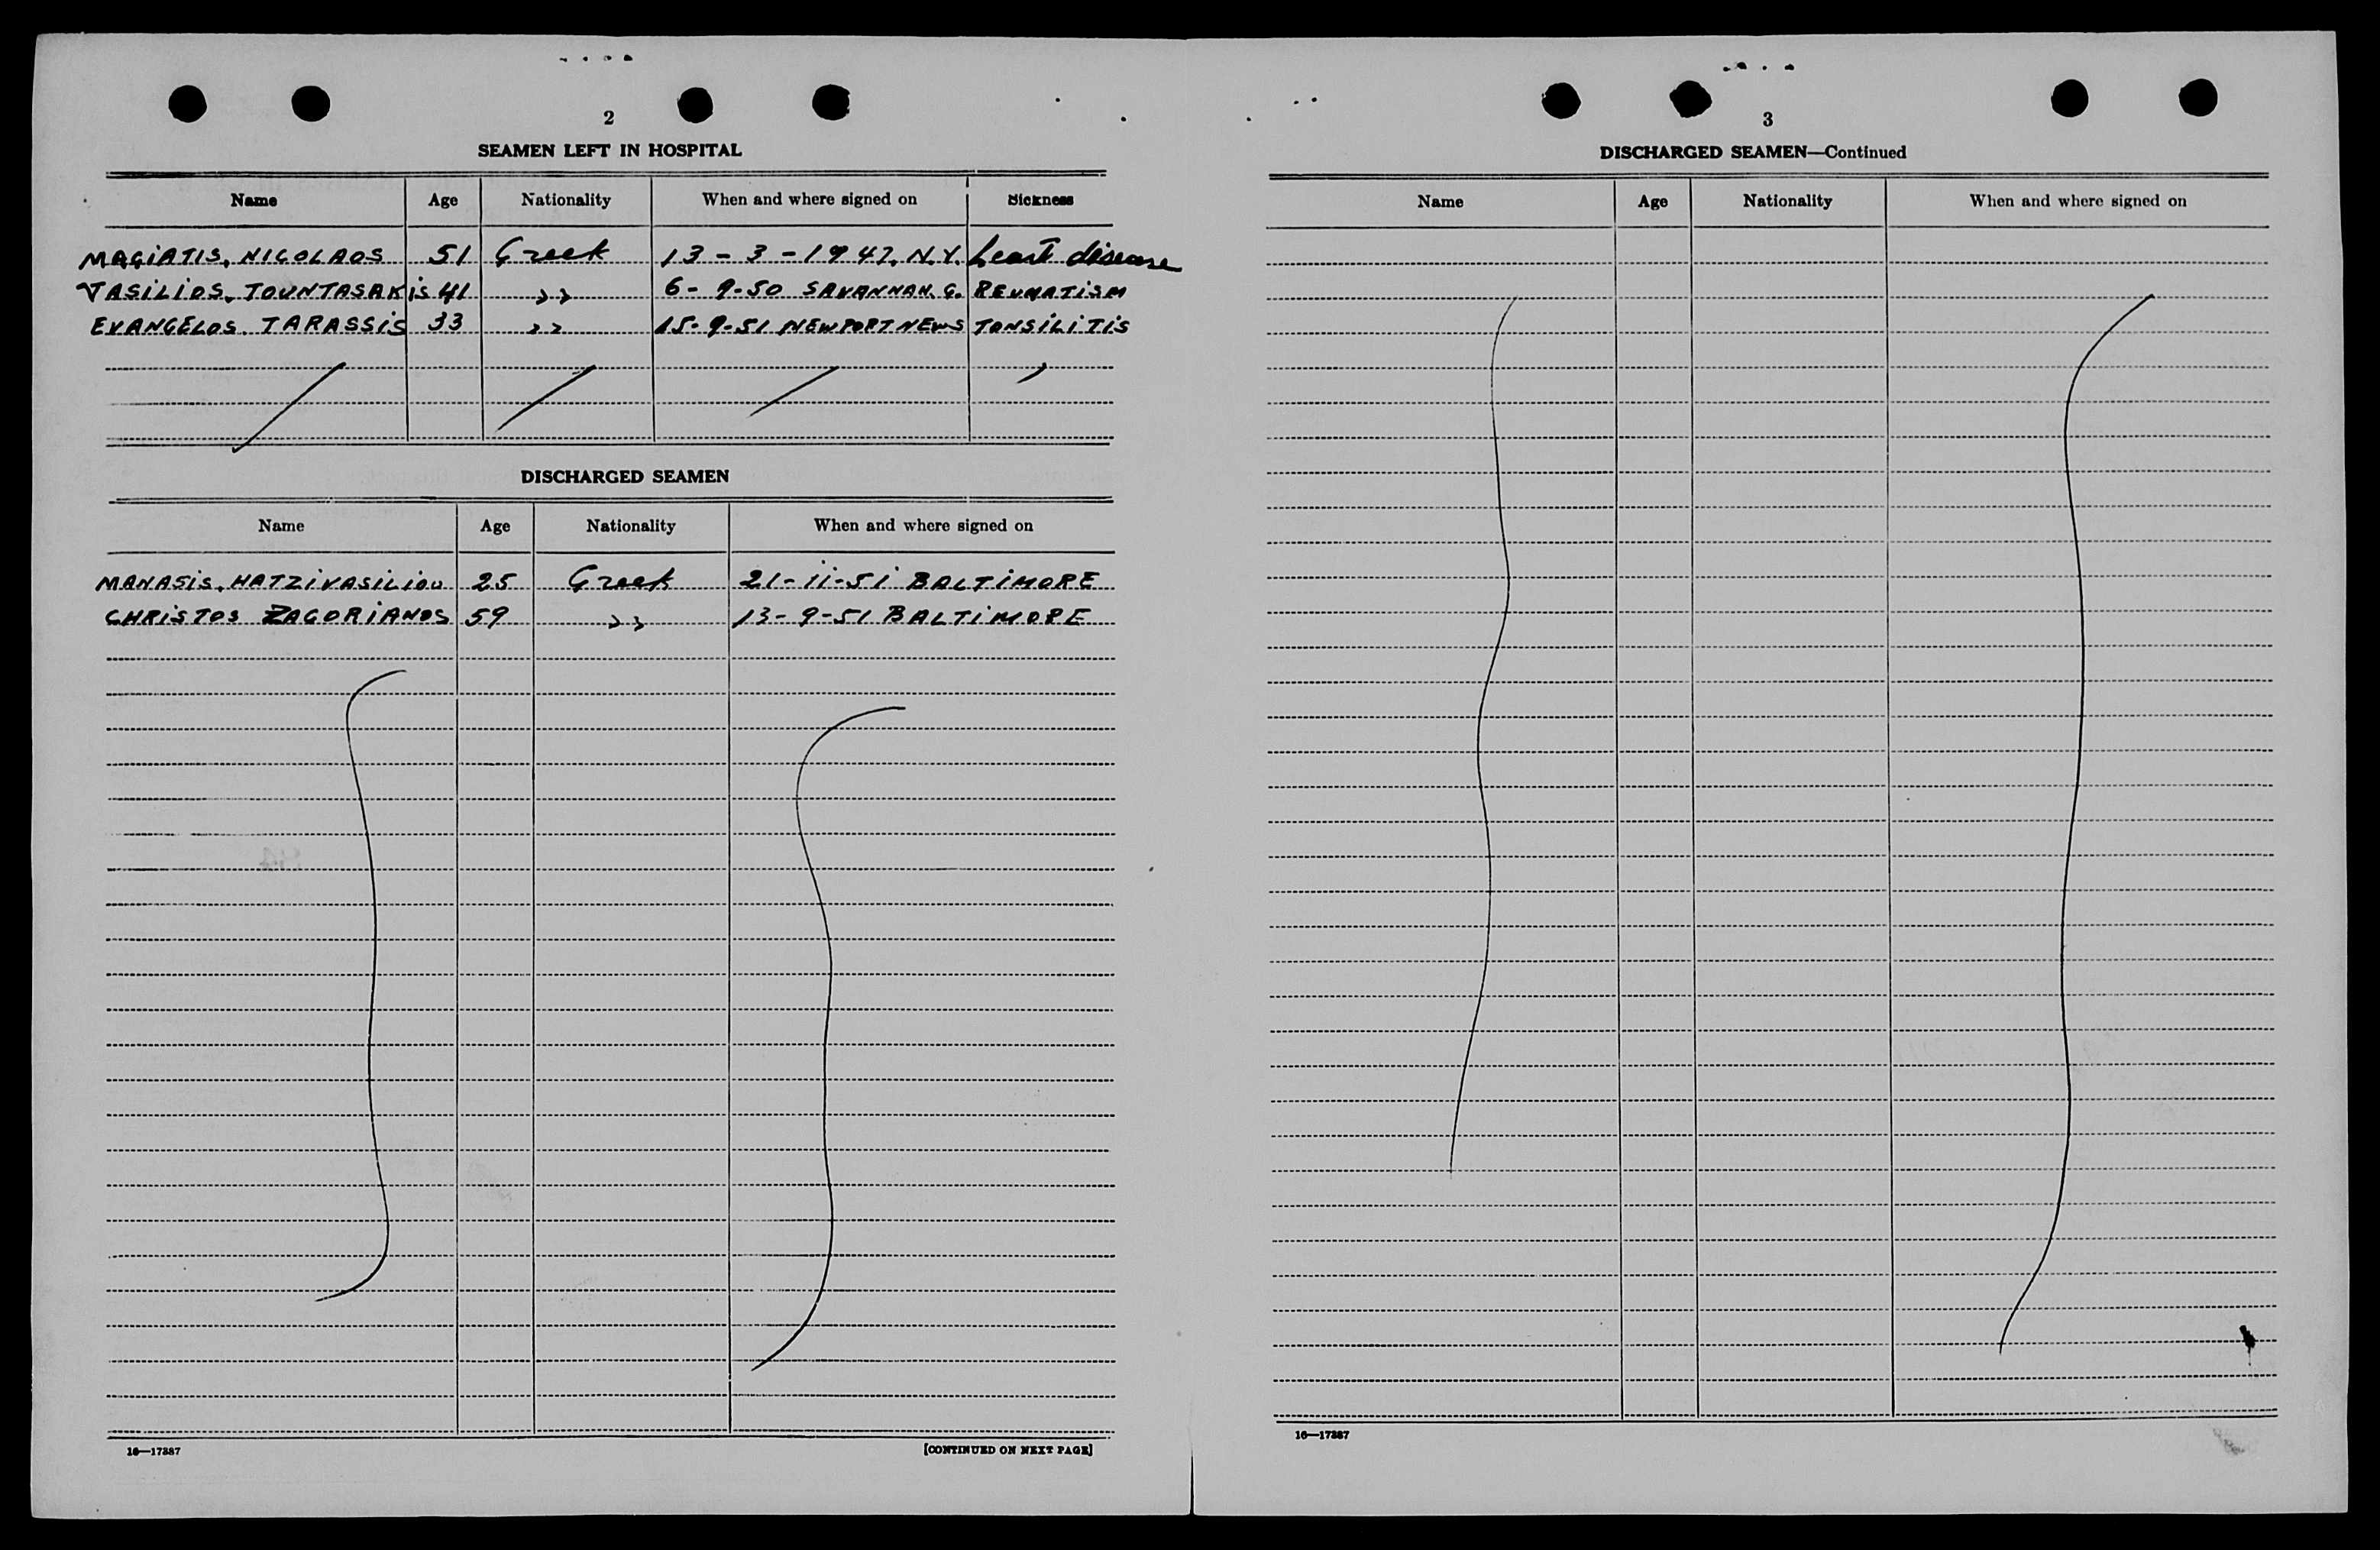 2
SEAMEN LEFT IN HOSPITAL
Name Age Nationality When and where signed on Sickness
MAGiATIS, NICOLAOS 51 Greek 13 - 3 - 1947. N.Y. heart disease
VASiLiOS. TOUNTASAKis 41 >> 6- 9-50 SAVANNAH. G. REUMATiSM
EVANGELOS. TARASSiS 33 >> 15-9-51 NEWPORT NEWS TONSiLiTiS
DISCHARGED SEAMEN
Name Age Nationality When and where signed on
MANASiS. HATZiVASiLiOU 25 Greek 21-11-51 BALTiMORE
CHRiSTOS ZAGORiANOS 59 >> 13-9-51 BALTiMORE
16—17387
[CONTINUED ON NEXT PAGE]
3
DISCHARGED SEAMEN—Continued
Name Age Nationality When and where signed on
16—17387